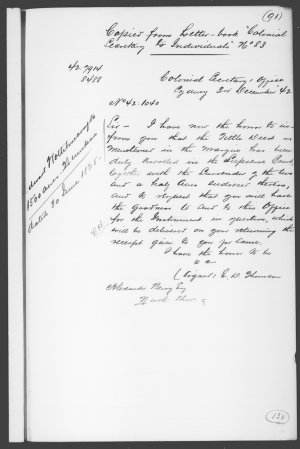 (91)
Copies from Letter-book "Colonial
Secretary to Individuals" No 83
42.7914
8488
Colonial Secretary's Office
Sydney 3rd December 42
No 42.1040
Sir - I have now the honor to in-
form you that the Title Deed as
Mentioned in the margin has been
duly enrolled in the Supreme Court
together with the Surrender of the two
and a half Acres endorsed thereon,
and to request that you will have
the goodness to send to this Office
for the Instrument in question, which
will be delivered on your returning the
receipt given to you for same.
I have the honor to be
&c
(Signed) E. D. Thomson
Alexander Berry Esq
North Shore
1500 acres
dated 30 June 1825
138